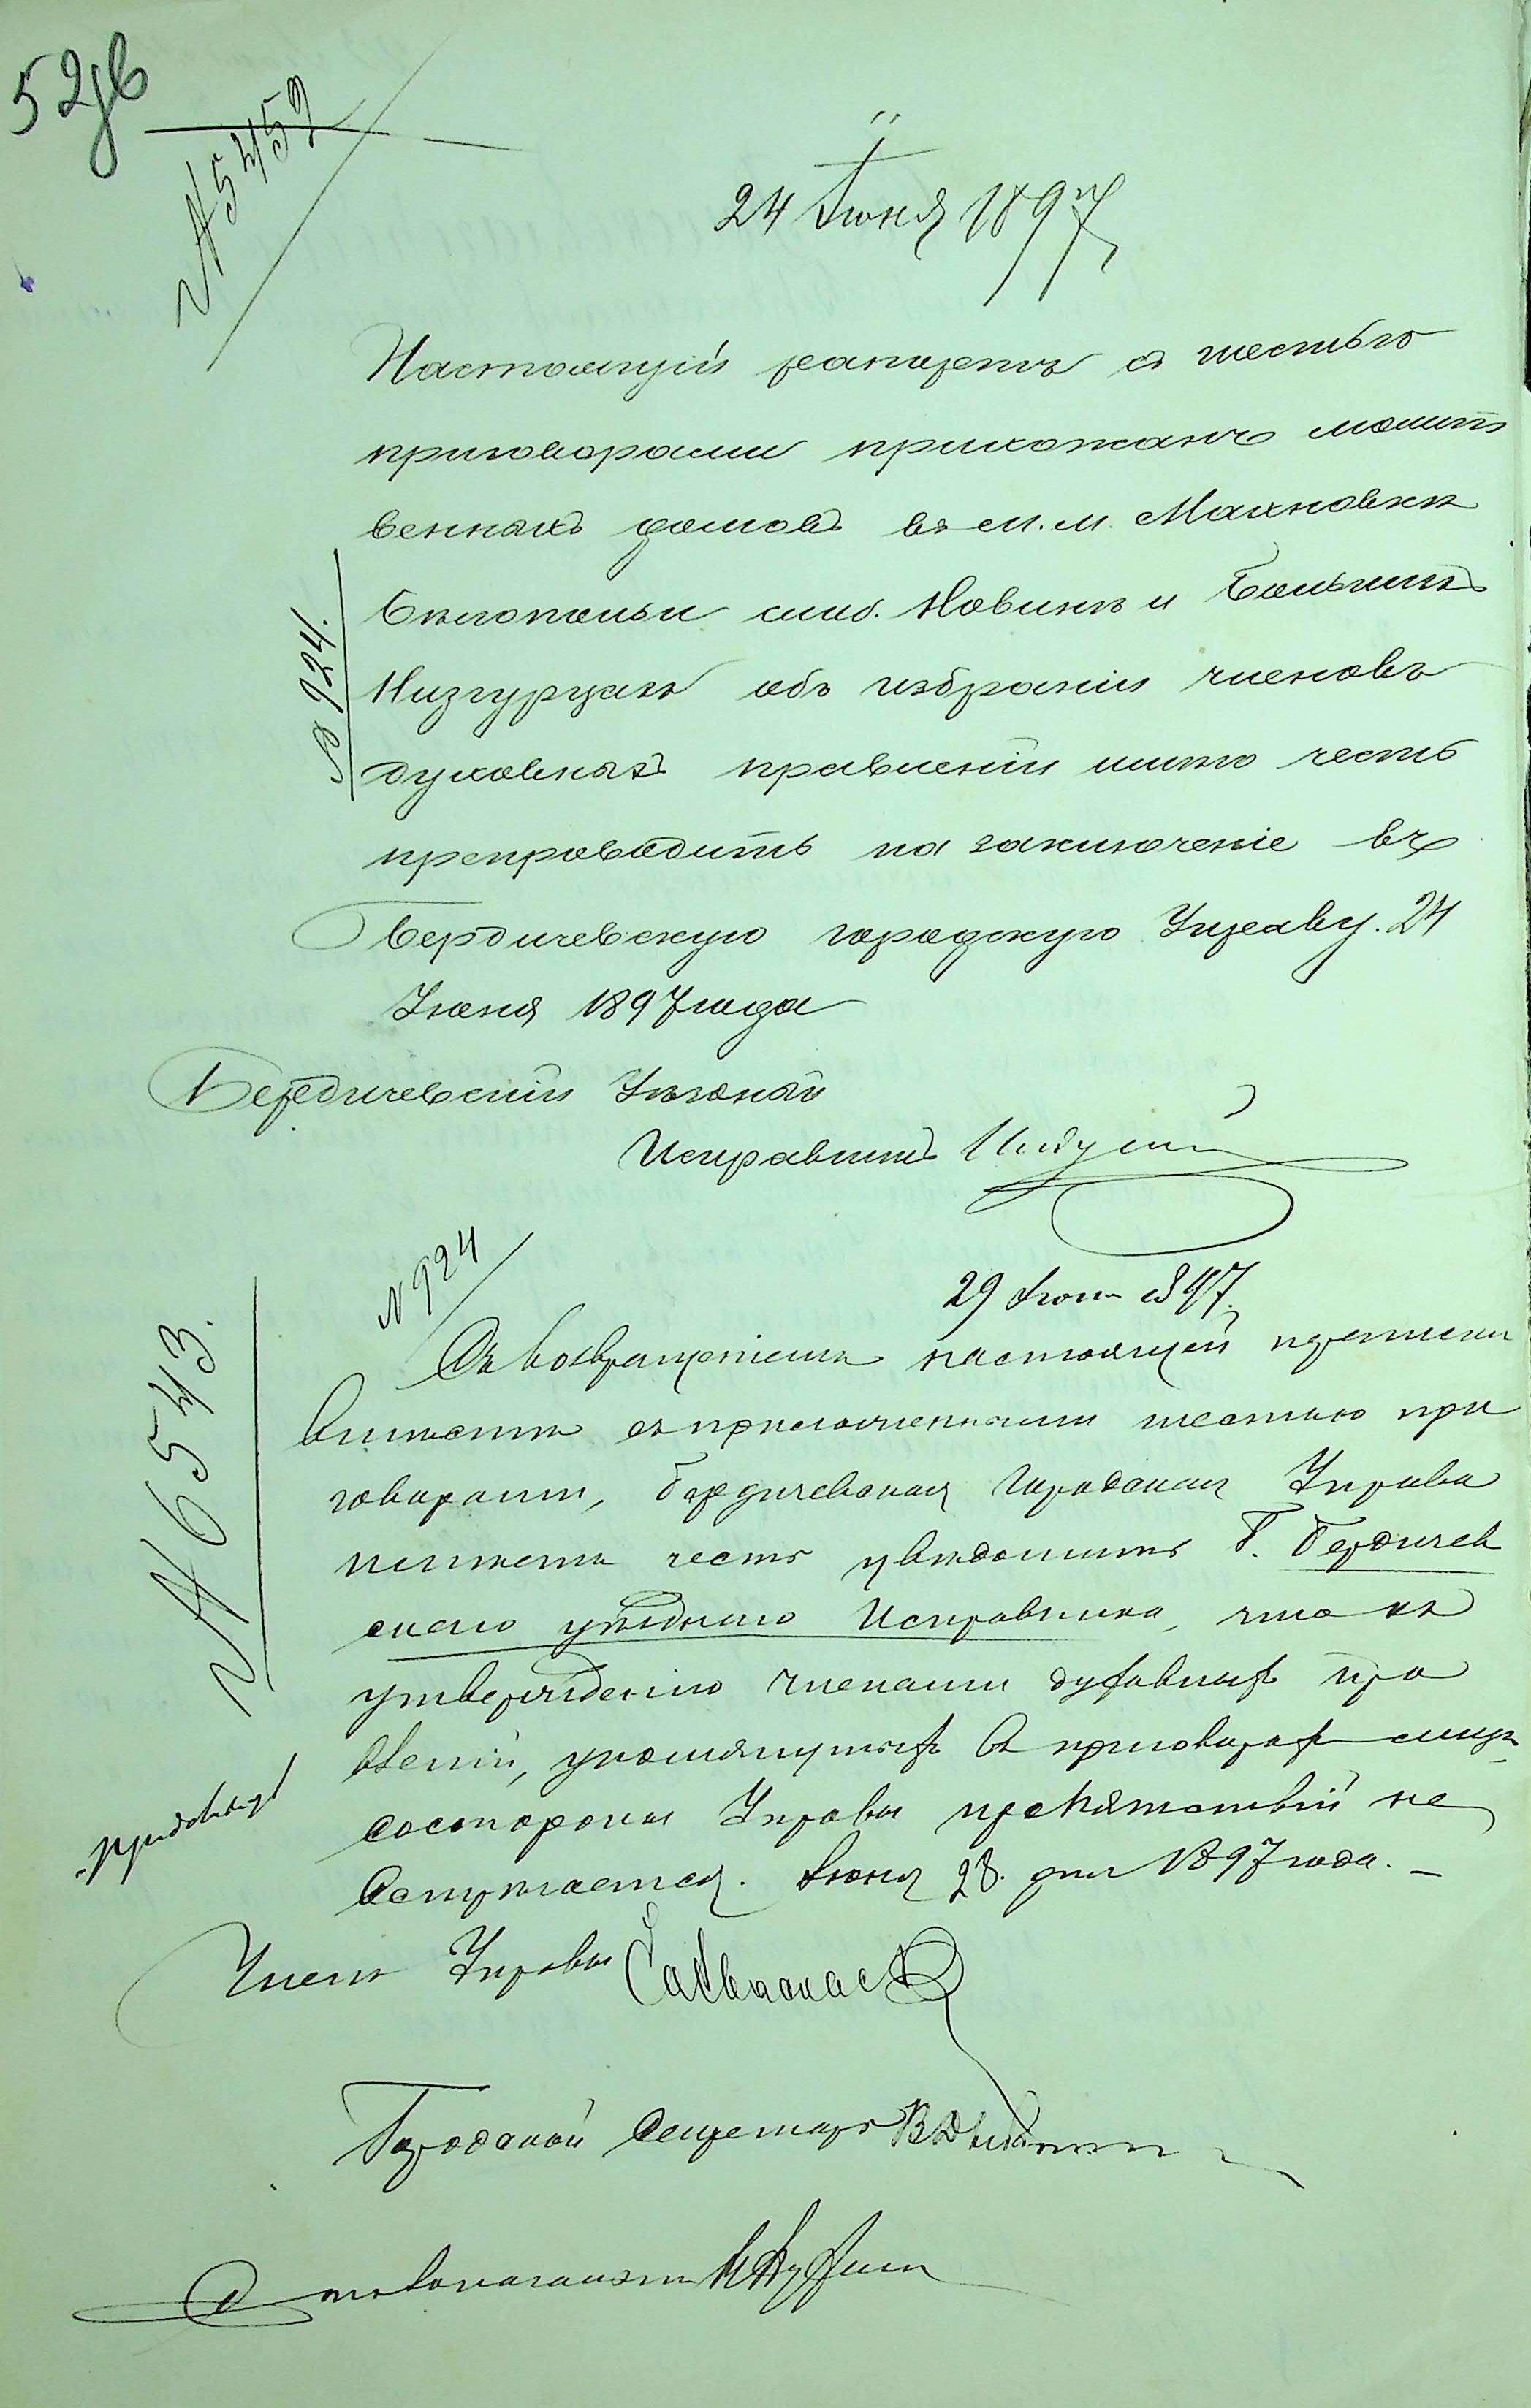 52 зв
№ 5459
24 Іюня 1897
Настоящій рапортъ съ шестью
приговорами прихожанъ молит
венныхъ домовъ въ м.м. Махновкѣ
Бѣлопольи Большихъ
Низгурцахъ объ избраніи членовъ
духовныхъ правленій имѣю честь
препроводить на заключеніе въ
Бердичевскую городскую Управу. 24
Іюня 1897 года
№ 924.
Бердичевскій Уѣздный
Исправникъ
№ 924
29 Іюня 1897.
Съ возвращеніемъ настоящей переписки
вмѣстѣ съ приложенными шестью при
говорами, Бердичевская Городская Управа
имѣетъ честь увѣдомить Г. Бердичев
скаго уѣзднаго Исправника, что къ
утвержденію членами духовныхъ пра
вленій, упомянутыхъ въ приговорахъ лицъ
со стороны Управы препятствій не
встрѣчается. Іюня 28 дня 1897 года. —
№ 6543.
Членъ Управы
Городской Секретарь